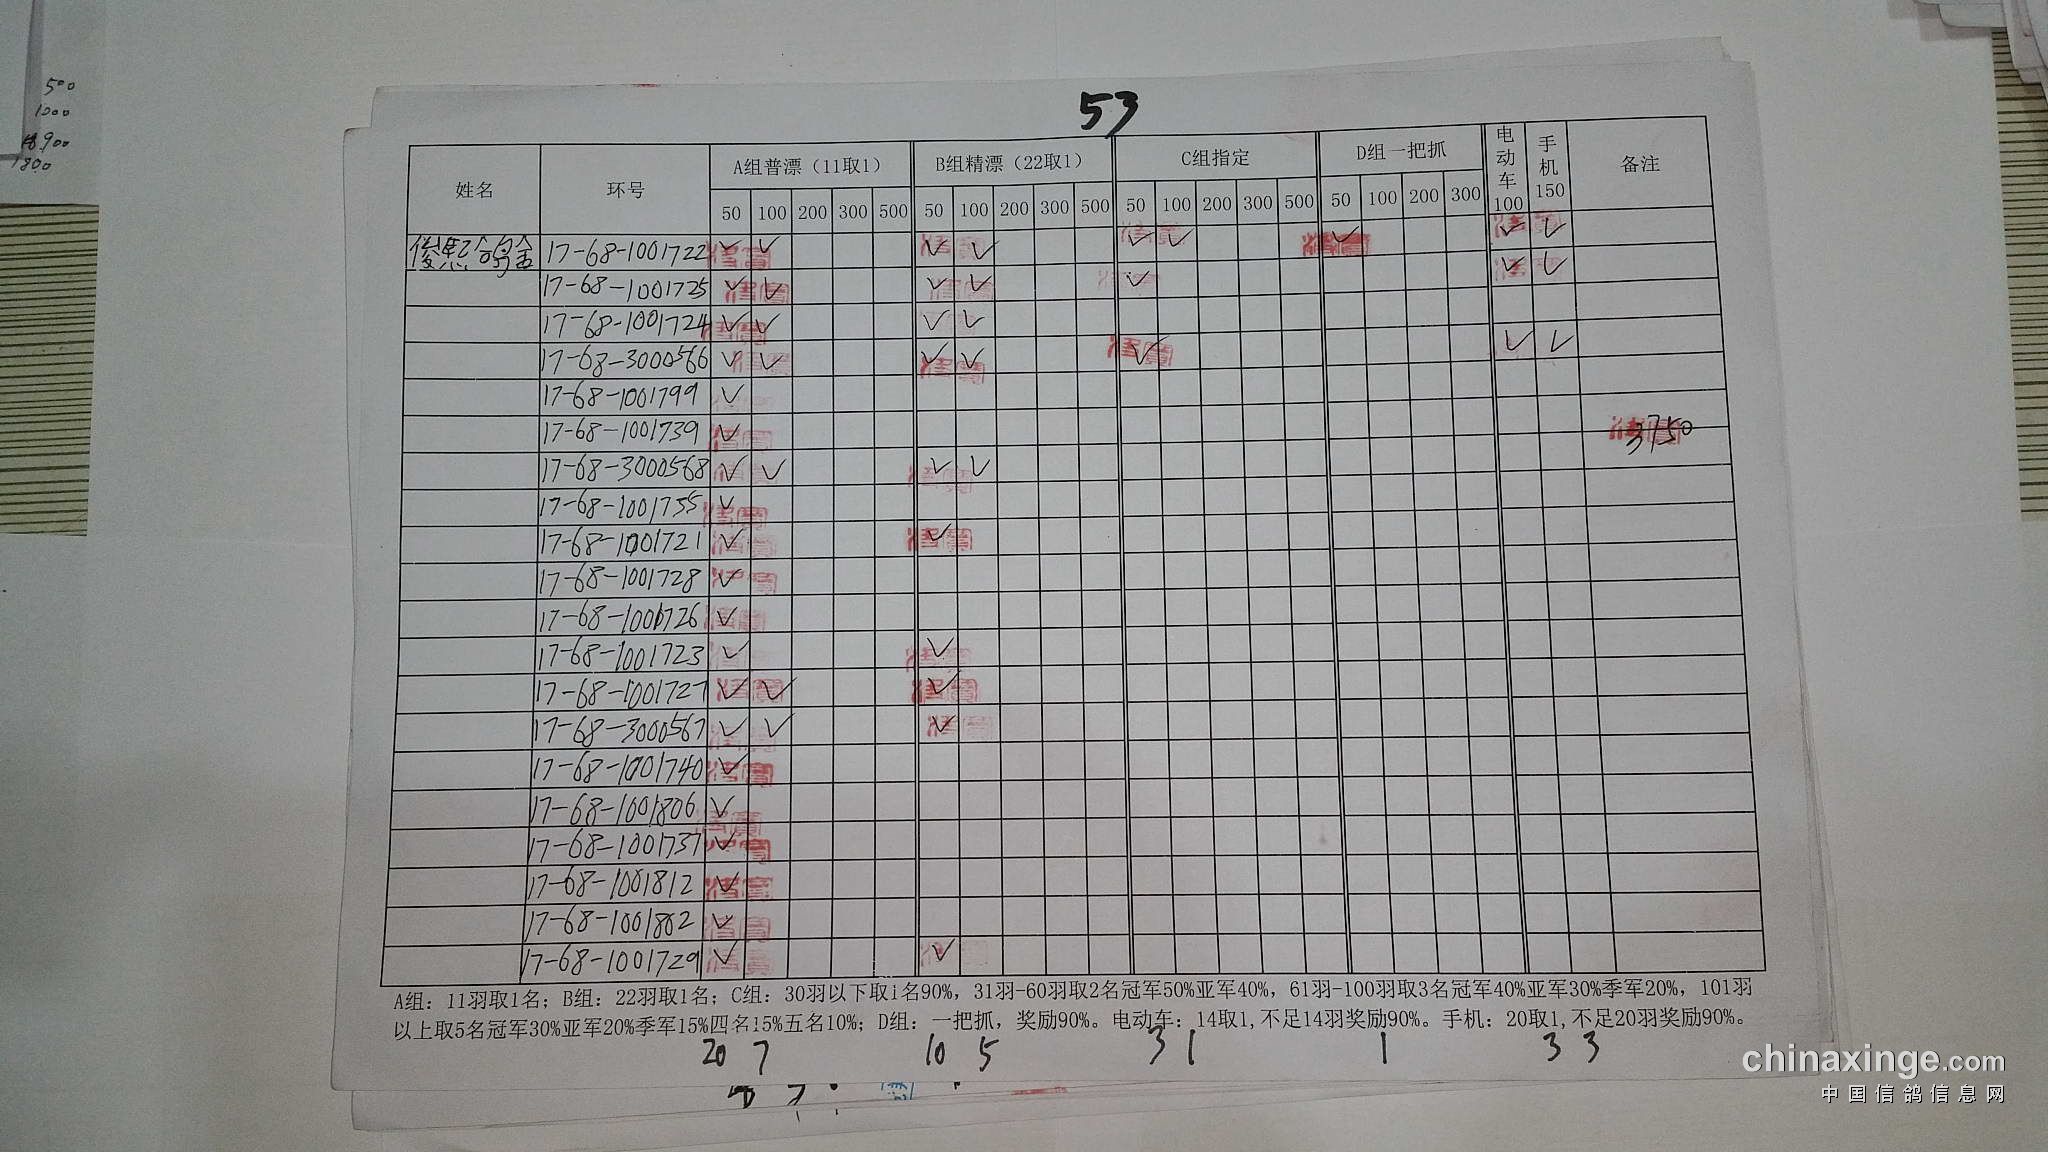 500
1000
1800
53
姓名 环号 A组普漂（11取1） B组精漂（22取1） C组指定 D组一把抓 电动车100 手机150 备注
50 100 200 300 500 50 100 200 300 500 50 100 200 300 500 50 100 200 300
17-68-1001722 ✓ ✓ ✓ ✓ ✓ ✓ ✓ ✓ ✓
17-68-1001725 ✓ ✓ ✓ ✓ ✓ ✓ ✓
17-68-1001724 ✓ ✓ ✓ ✓
17-68-3000566 ✓ ✓ ✓ ✓ ✓ ✓ ✓
17-68-1001799 ✓
17-68-1001739 ✓ 3750
17-68-3000568 ✓ ✓ ✓ ✓
17-68-1001755 ✓
17-68-1001721 ✓ ✓
17-68-1001728 ✓
17-68-1001726 ✓
17-68-1001723 ✓ ✓
17-68-1001727 ✓ ✓ ✓
17-68-3000567 ✓ ✓ ✓
17-68-1001740 ✓
17-68-1001806 ✓
17-68-1001737 ✓
17-68-1001812 ✓
17-68-1001802 ✓
17-68-1001729 ✓ ✓
A组：11羽取1名；B组：22羽取1名；C组：30羽以下取1名90%，31羽-60羽取2名冠军50%亚军40%，61羽-100羽取3名冠军40%亚军30%季军20%，101羽
以上取5名冠军30%亚军20%季军15%四名15%五名10%；D组：一把抓，奖励90%。电动车：14取1,不足14羽奖励90%。手机：20取1,不足20羽奖励90%。
20 7 10 5 3 1 1 3 3
chinaxinge.com
中国信鸽信息网